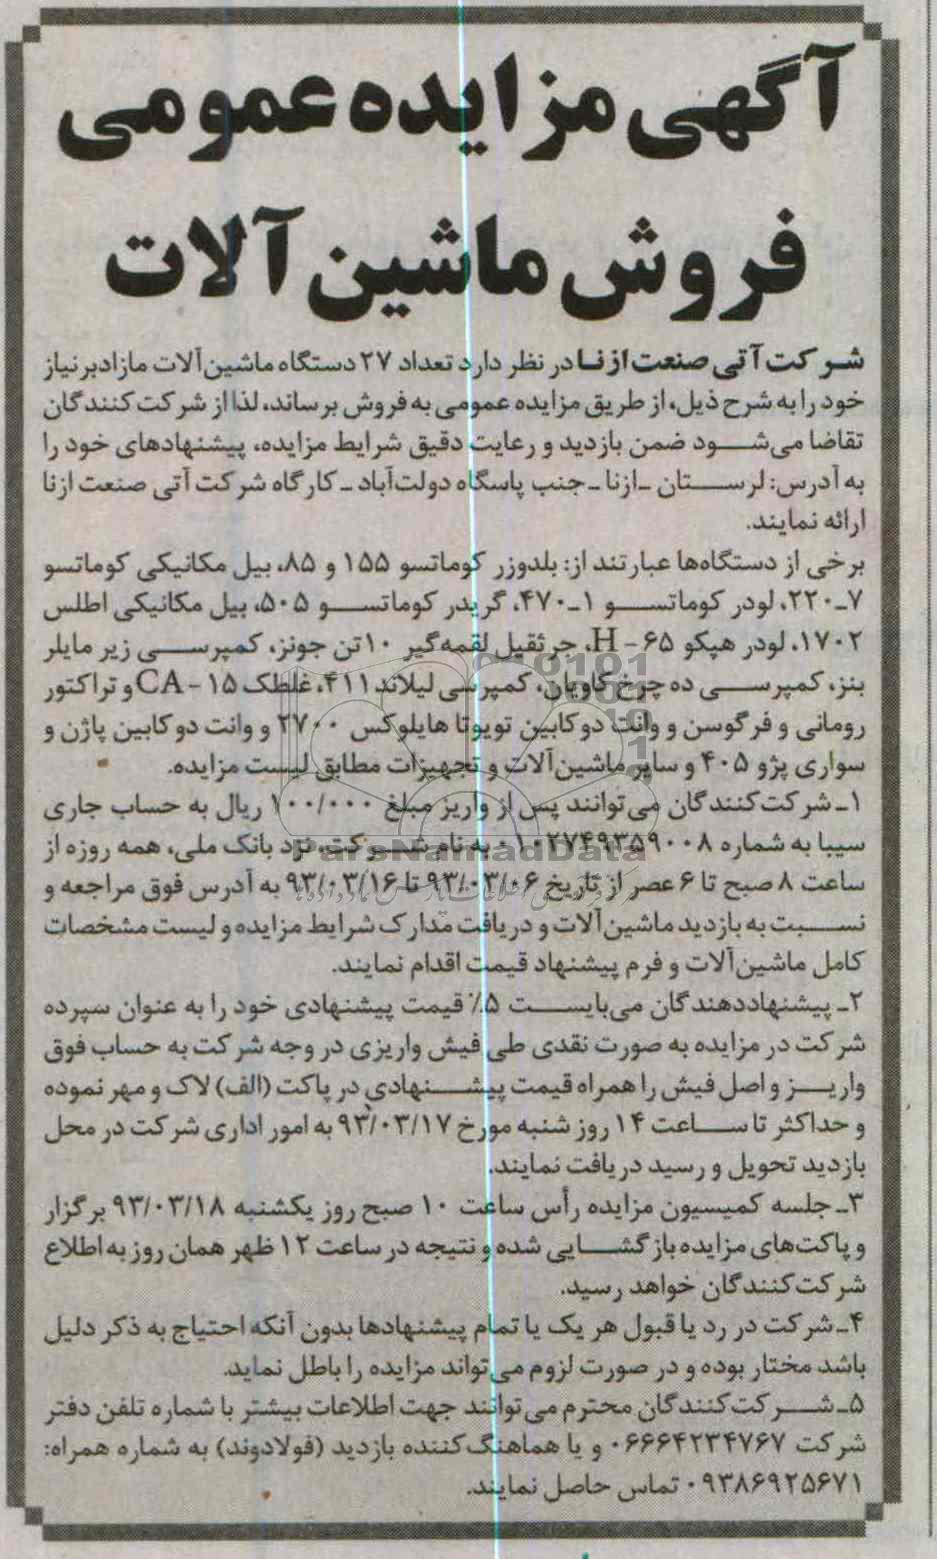 آگهی مزایده عمومی
فروش ماشین آلات
شرکت آتی صنعت ازنا در نظر دارد تعداد ۲۷ دستگاه ماشین‌آلات مازادبرنیاز
خود را به شرح ذیل، از طریق مزایده عمومی به فروش برساند، لذا از شرکت‌کنندگان
تقاضا می‌شود ضمن بازدید و رعایت دقیق شرایط مزایده، پیشنهادهای خود را
به آدرس: لرستان ـ ازنا ـ جنب پاسگاه دولت‌آباد ـ کارگاه شرکت آتی صنعت ازنا
ارائه نمایند.
برخی از دستگاه‌ها عبارتند از: بلدوزر کوماتسو ۱۵۵ و ۸۵، بیل مکانیکی کوماتسو
۷ـ۲۲۰، لودر کوماتسو ۱ـ۴۷۰، گریدر کوماتسو ۵۰۵، بیل مکانیکی اطلس
۱۷۰۲، لودر هپکو ۶۵ - H، جرثقیل لقمه‌گیر ۱۰تن جونز، کمپرسی زیر مایلر
بنز، کمپرسی ده چرخ کاویان، کمپرسی لیلاند ۴۱۱، غلطک ۱۵ - CA و تراکتور
رومانی و فرگوسن و وانت دوکابین تویوتا هایلوکس ۲۷۰۰ و وانت دوکابین پاژن و
سواری پژو ۴۰۵ و سایر ماشین‌آلات و تجهیزات مطابق لیست مزایده.
۱ـ شرکت‌کنندگان می‌توانند پس از واریز مبلغ ۱۰۰/۰۰۰ ریال به حساب جاری
سیبا به شماره ۰۱۰۲۷۴۹۳۵۹۰۰۸ به نام شرکت، نزد بانک ملی، همه روزه از
ساعت ۸ صبح تا ۶ عصر از تاریخ ۹۳/۰۳/۰۶ تا ۹۳/۰۳/۱۶ به آدرس فوق مراجعه و
نسبت به بازدید ماشین‌آلات و دریافت مدارک شرایط مزایده و لیست مشخصات
کامل ماشین‌آلات و فرم پیشنهاد قیمت اقدام نمایند.
۲ـ پیشنهاددهندگان می‌بایست ۵٪ قیمت پیشنهادی خود را به عنوان سپرده
شرکت در مزایده به صورت نقدی طی فیش واریزی در وجه شرکت به حساب فوق
واریز و اصل فیش را همراه قیمت پیشنهادی در پاکت (الف) لاک و مهر نموده
و حداکثر تا ساعت ۱۴ روز شنبه مورخ ۹۳/۰۳/۱۷ به امور اداری شرکت در محل
بازدید تحویل و رسید دریافت نمایند.
۳ـ جلسه کمیسیون مزایده رأس ساعت ۱۰ صبح روز یکشنبه ۹۳/۰۳/۱۸ برگزار
و پاکت‌های مزایده بازگشایی شده و نتیجه در ساعت ۱۲ ظهر همان روز به اطلاع
شرکت‌کنندگان خواهد رسید.
۴ـ شرکت در رد یا قبول هر یک یا تمام پیشنهادها بدون آنکه احتیاج به ذکر دلیل
باشد مختار بوده و در صورت لزوم می‌تواند مزایده را باطل نماید.
۵ـ شرکت‌کنندگان محترم می‌توانند جهت اطلاعات بیشتر با شماره تلفن دفتر
شرکت ۰۶۶۶۴۲۳۴۷۶۷ و یا هماهنگ‌کننده بازدید (فولادوند) به شماره همراه:
۰۹۳۸۶۹۲۵۶۷۱ تماس حاصل نمایند.
ParsNamadData